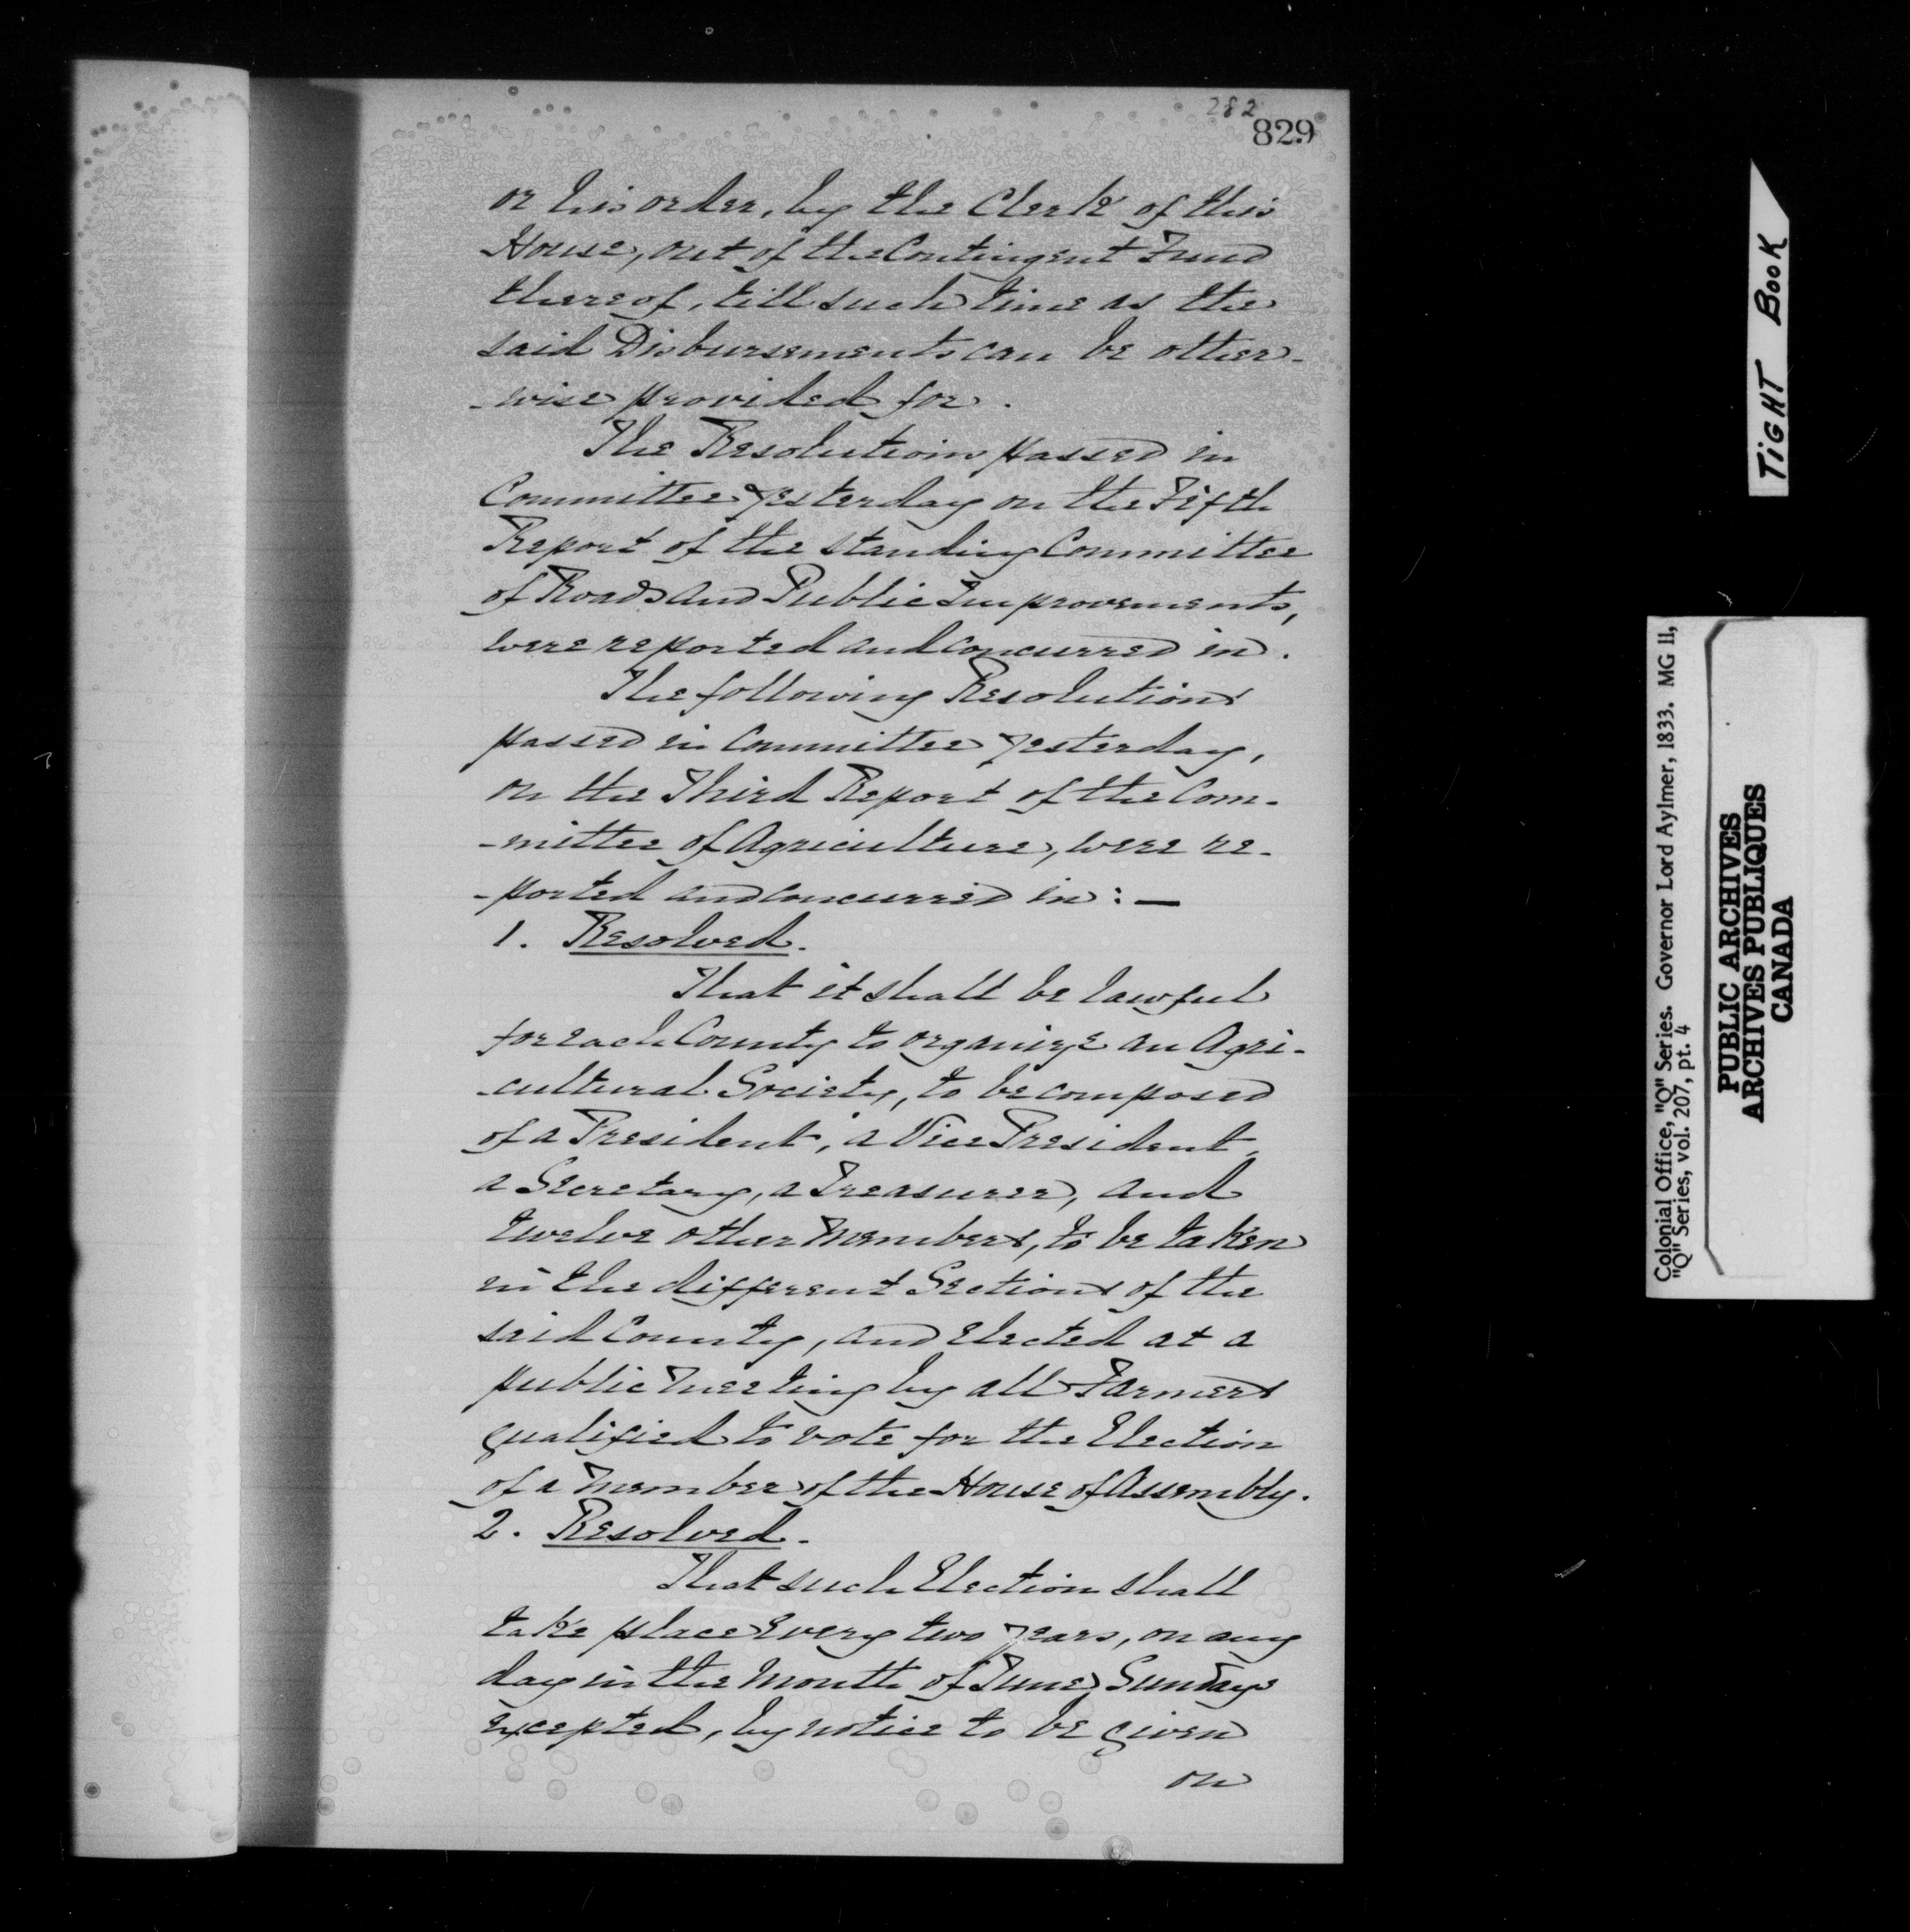 282
829
or his order, by the Clerk of this
House, out of the Contingent Fund
thereof, till such time as the
said Disbursements can be other-
-wise provided for.
The Resolution passed in
Committee yesterday on the Fifth
Report of the Standing Committee
of Roads and Public Improvements,
were reported and concurred in.
The following Resolutions
passed in Committee yesterday,
on the Third Report of the Com-
-mittee of Agriculture, were re-
-ported and concurred in: —
1. Resolved.
That it shall be lawful
for each County to organize an Agri-
-cultural Society, to be composed
of a President, a Vice President,
a Secretary, a Treasurer, and
twelve other Members, to be taken
in the different Sections of the
said County, and Elected at a
public meeting by all Farmers
qualified to vote for the Election
of a Member of the House of Assembly.
2. Resolved.
That such Election shall
take place Every two years, on any
day in the Month of June, Sundays
excepted, by notice to be given
on
TIGHT BOOK
Colonial Office, "Q" Series. Governor Lord Aylmer, 1833. MG 11,
"Q" Series, vol. 207, pt. 4
PUBLIC ARCHIVES
ARCHIVES PUBLIQUES
CANADA